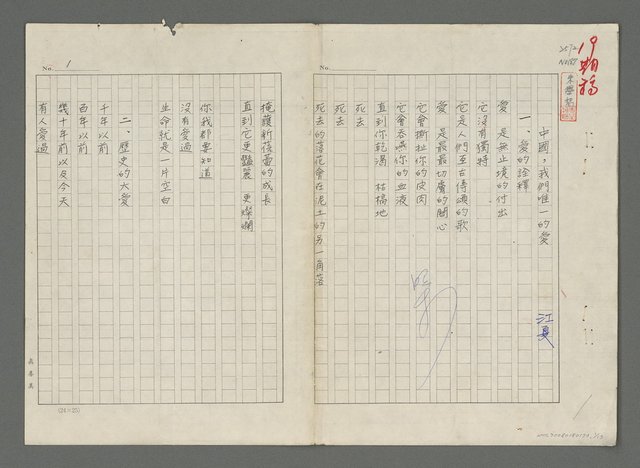 19期稿
No.
中國，我們唯一的愛
江夏
一、愛的詮釋
愛 是無止境的付出
它沒有獨特
它是人們亙古傳頌的歌
愛 是最最切膚的關心
它會撕扯你的皮肉
它會吞噬你的血液
直到你乾渴 枯槁地
死去
死去
死去的落花會在泥土的另一角落
No. 1
掩護新蓓蕾的成長
直到它更豔麗 更燦爛
你我都要知道
沒有愛過
生命就是一片空白
二、歷史的大愛
千年以前
百年以前
幾十年前以及今天
有人愛過
(24×25)